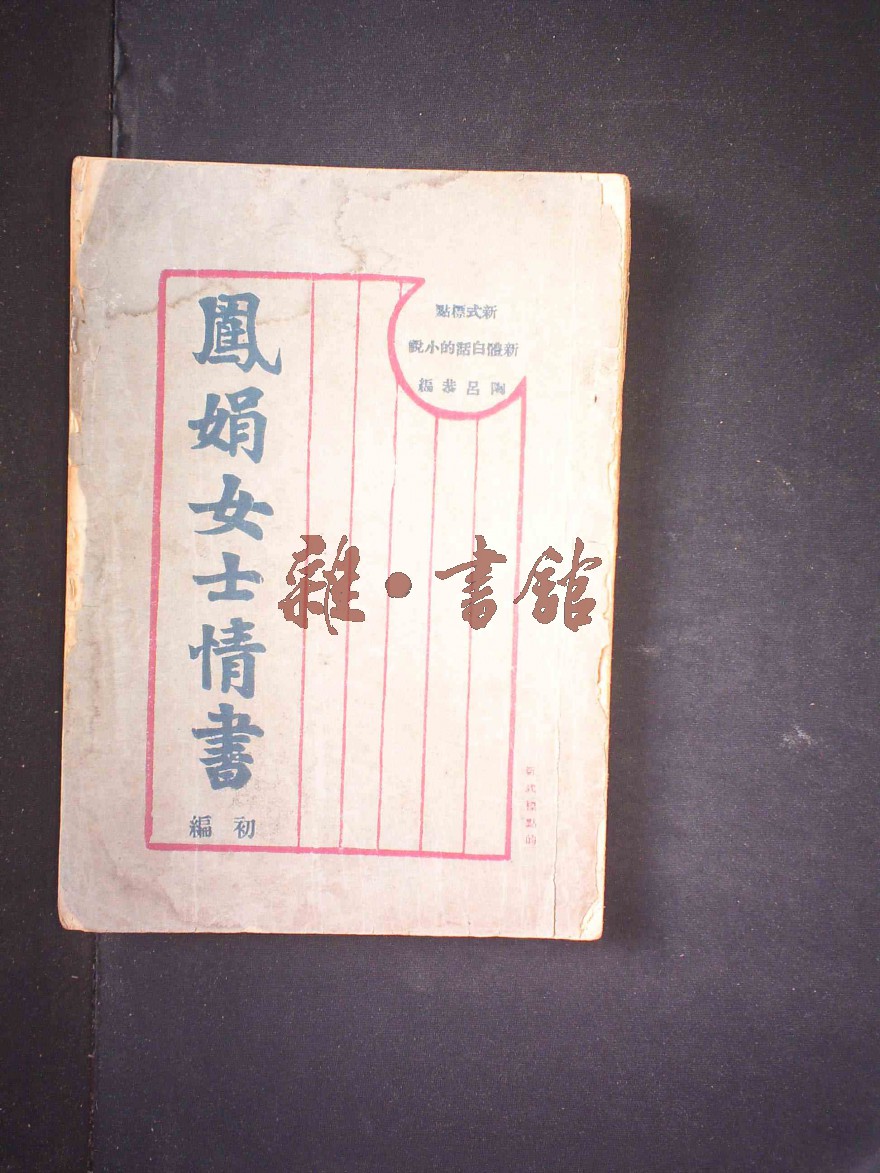 新式標點
新體白話的小說
陶呂恭編
鳳娟女士情書
初編
新式標點的
雜·書館